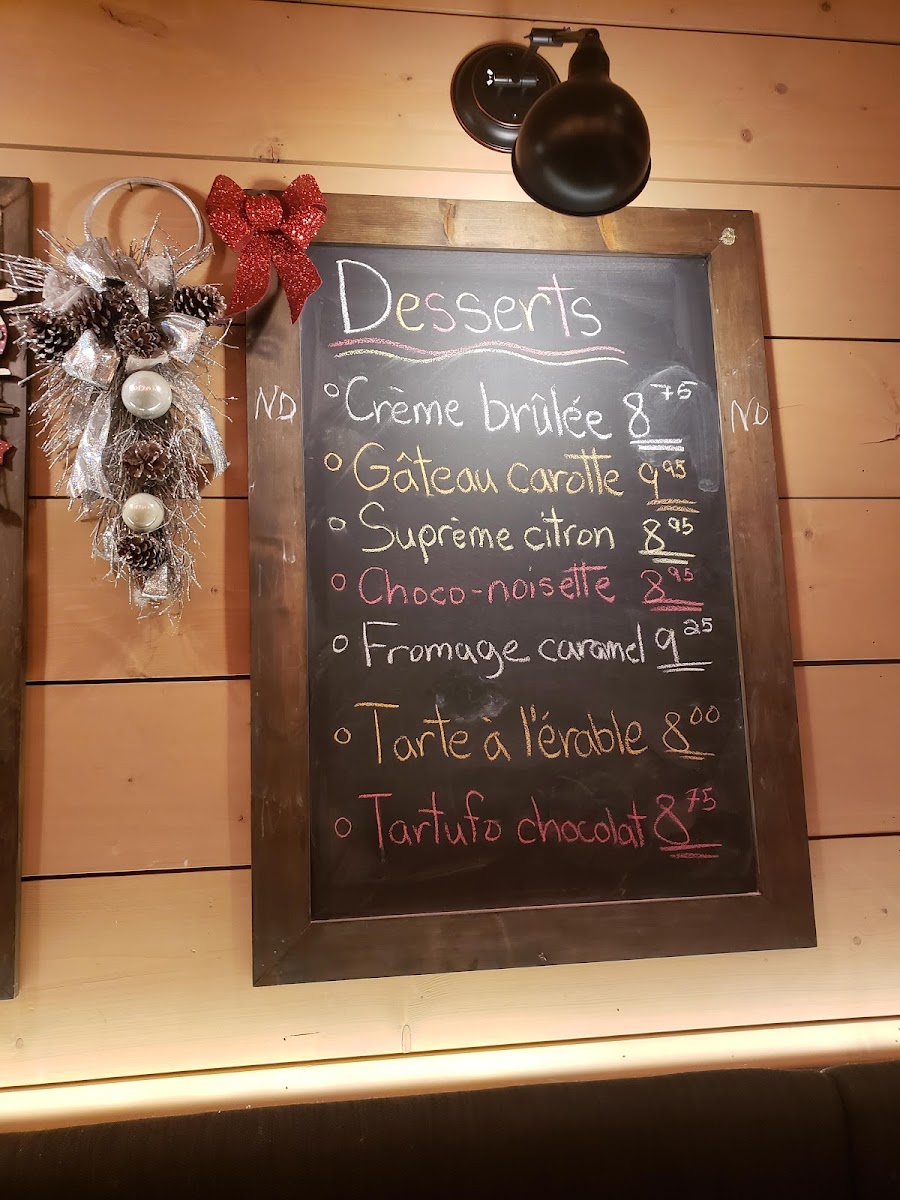 Desserts
ND
ND
Crème brûlée 8.75
Gâteau carotte 9.95
Suprème citron 8.95
Choco-noisette 8.95
Fromage caramel 9.25
Tarte à l'érable 8.00
Tartufo chocolat 8.75